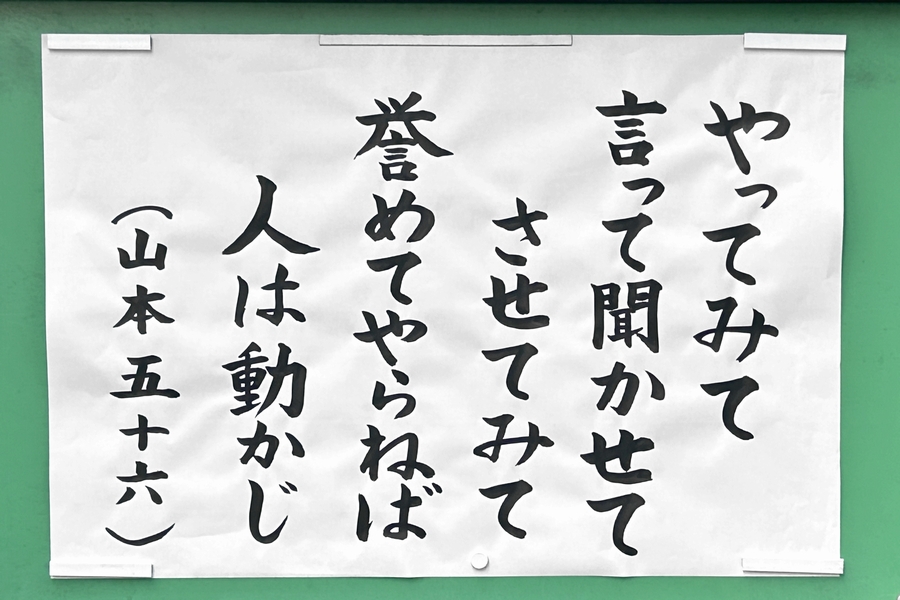 やってみて
言って聞かせて
させてみて
誉めてやらねば
人は動かじ
（山本五十六）